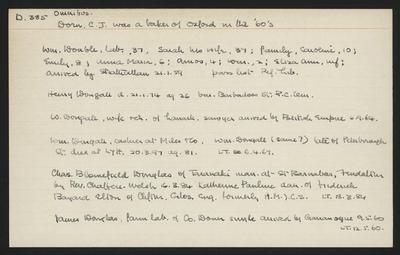 D.385 Omnibus.
Dorn, C.J. was a baker of Oxford in the '60's
Wm. Double, lab., 37, Sarah his wife, 37; family, Caroline, 10;
Emily, 8; Anna Maria, 6; Amos, 4; Wm., 2; Eliza Ann, inf;
arrived by Strathallan 21.1.59 pass. list Pig. Lib.
Henry Dougall d. 21.1.74 ag 26 bur. Barbadoes St. R.C. Cem.
W. Dougall, wife & ch. of Lanark. sawyer arrived by British Empire 6.9.64.
Wm. Dougall, cashier at Miles & Co, Wm. Dougall (same?) late of Peterborough
St. died at Lytt. 20.3.97 ag. 81. LT. 26.6.67.
Chas. Bloomfield Douglas of Taranaki mar. at St Barnabas, Fendalton
by Rev. Chalfers-Welsh 6.3.84 Katherine Pauline dau. of Frederick
Bayard Elton of Clifton, Glos, Eng. formerly H.M.I.C.S. LT. 13.3.84
James Douglas, farm lab. of Co. Down single arrived by Gananoque 9.5.60
LT. 12.5.60.